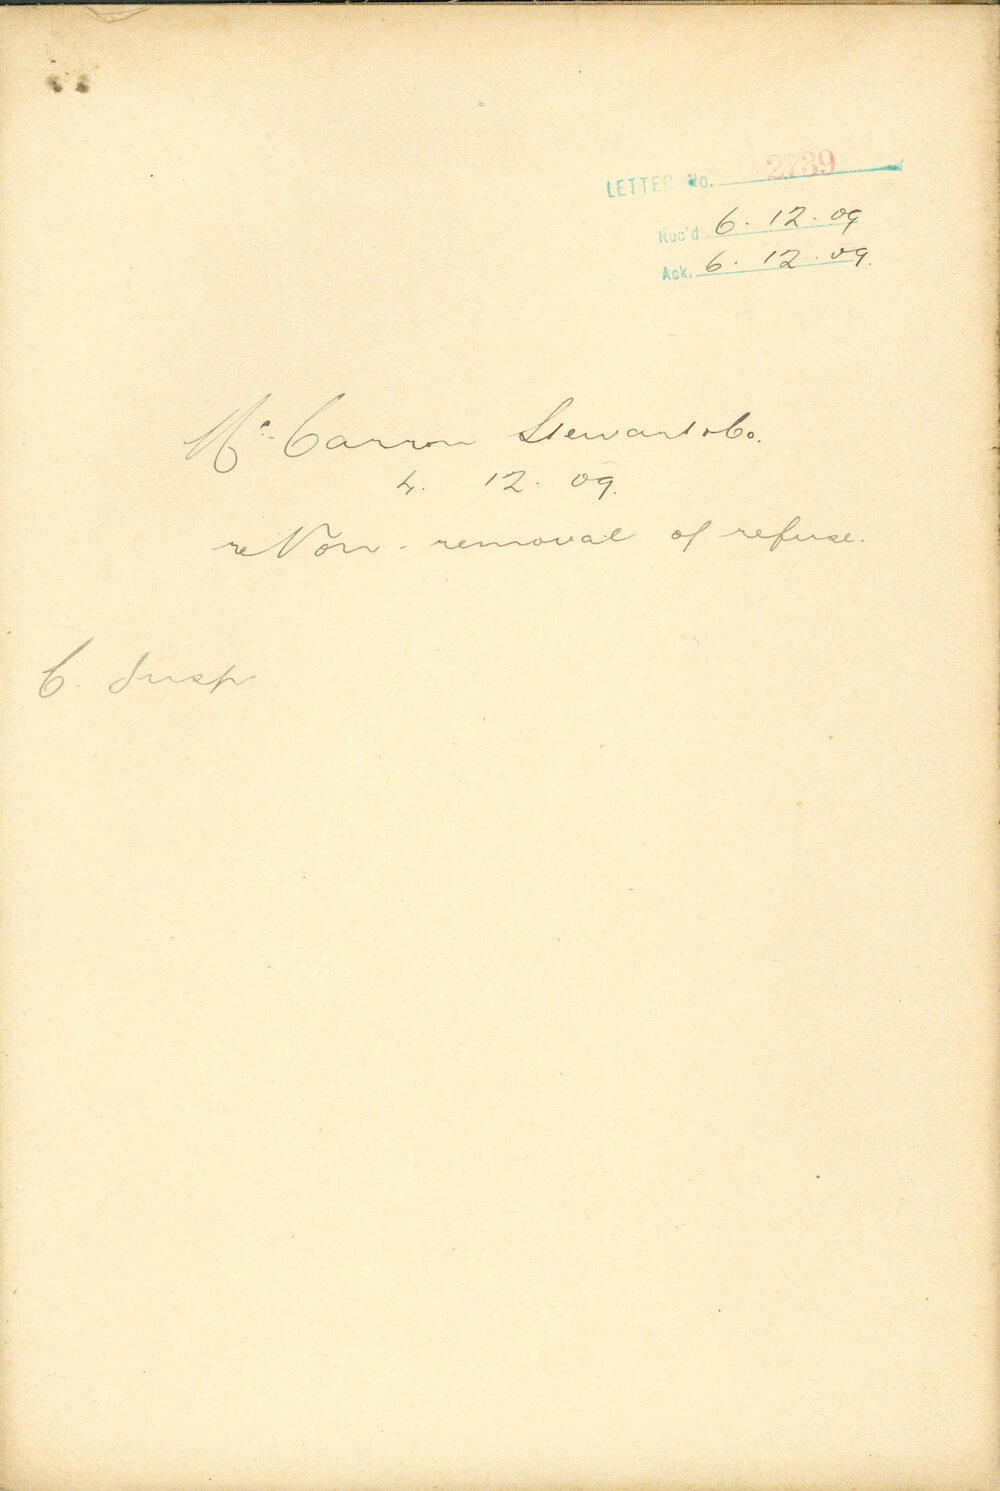 LETTER No. 2739
Rec'd 6. 12. 09
Ack. 6. 12. 09.
Mc Carron Stewart & Co.
4. 12. 09.
re Non-removal of refuse.
C. Insp